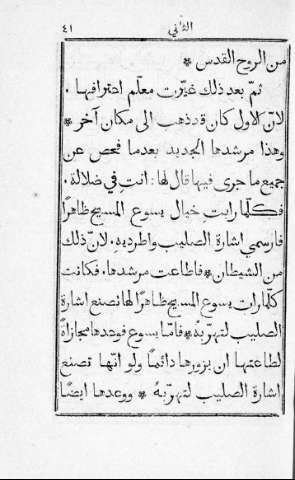 الثاني ٤١
من الروح القدس *
ثمّ بعد ذلك غيّرت معلّم اعترافها .
لانّ الاول كان قد ذهب الى مكان آخر *
وهذا مرشدها الجديد بعدما فحص عن
جميع ما جرى فيها قال لها : انتِ في ضلالة .
فكلّما رايتِ خيال يسوع المسيح ظاهرًا
فارسمي اشارة الصليب واطرديهِ . لانّ ذلك
من الشيطان * فاطاعت مرشدها . فكانت
كلّما رات يسوع المسيح ظاهرًا لها تصنع اشارة
الصليب لتهرّبهُ * فامّا يسوع فوعدها مجازاةً
لطاعتها ان يزورها دائمًا ولو انّها تصنع
اشارة الصليب لتهرّبهُ * ووعدها ايضًا